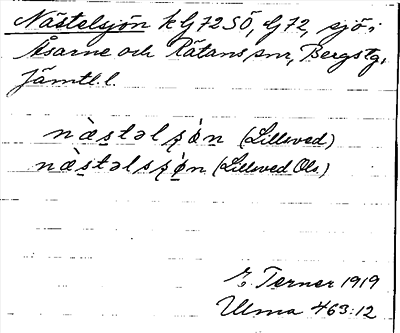 Nästelsjön k G 72 SÖ, G 72, sjö i
Åsarne och Rätans snr, Bergs tg,
Jämtl. l.
næ̀stəlʂɵ̀n (Lillsved)
næ̀stəlsʂɵ̀n (Lillsved Ols.)
E. Terner 1919
Ulma 463:12